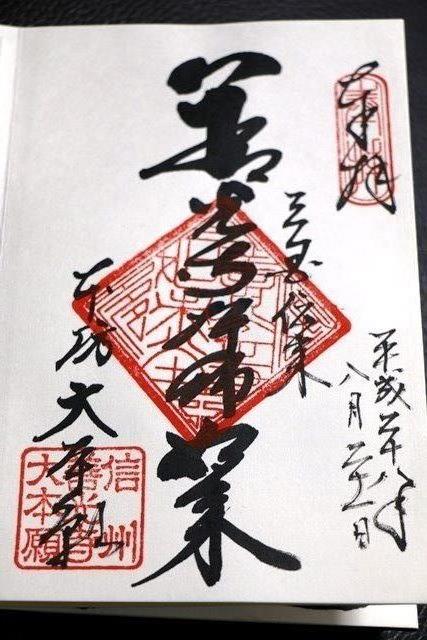 奉拝
平成二十八年
八月二十一日
三国伝来
善光寺本師如来
本坊大本願
信州
善光寺
大本願